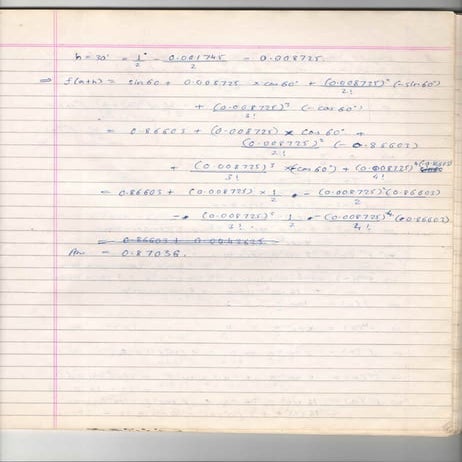 h = 30' = 1/2° = 0.001745/2 = 0.008725.
⇒ f(a+h) = sin60 + 0.008725 × cos60° + (0.008725)²/2! (-sin60°)
+ (0.008725)³/3! (-cos60°)
= 0.86603 + (0.008725) × cos60° + (0.008725)²/2! (-0.86603)
+ (0.008725)³/3! × (-cos60°) + (0.008725)⁴/4! (-0.86603)
= 0.86603 + (0.008725) × 1/2 - (0.008725)²(0.86603)/2
- (0.008725)³/3! · 1/2 - (0.008725)⁴/4! (0.86603)
= 0.86603 + 0.0043625
Ans = 0.87036.